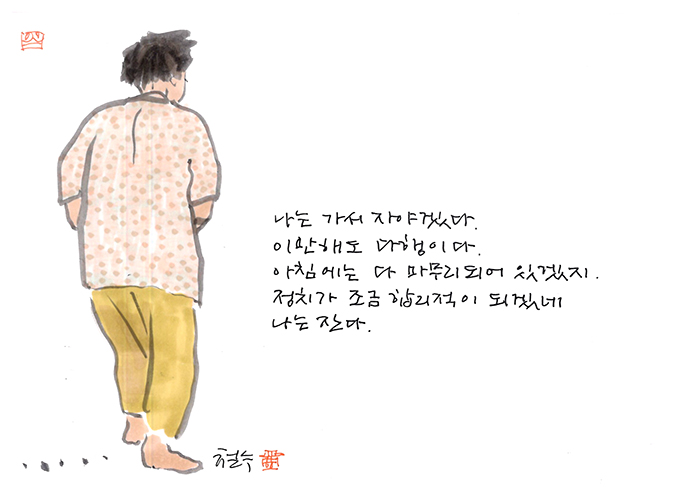 나는 가서 자야겠다.
이만해도 다행이다.
아침에는 다 마무리되어 있겠지.
정치가 조금 합리적이 되겠네
나는 잔다.
철수